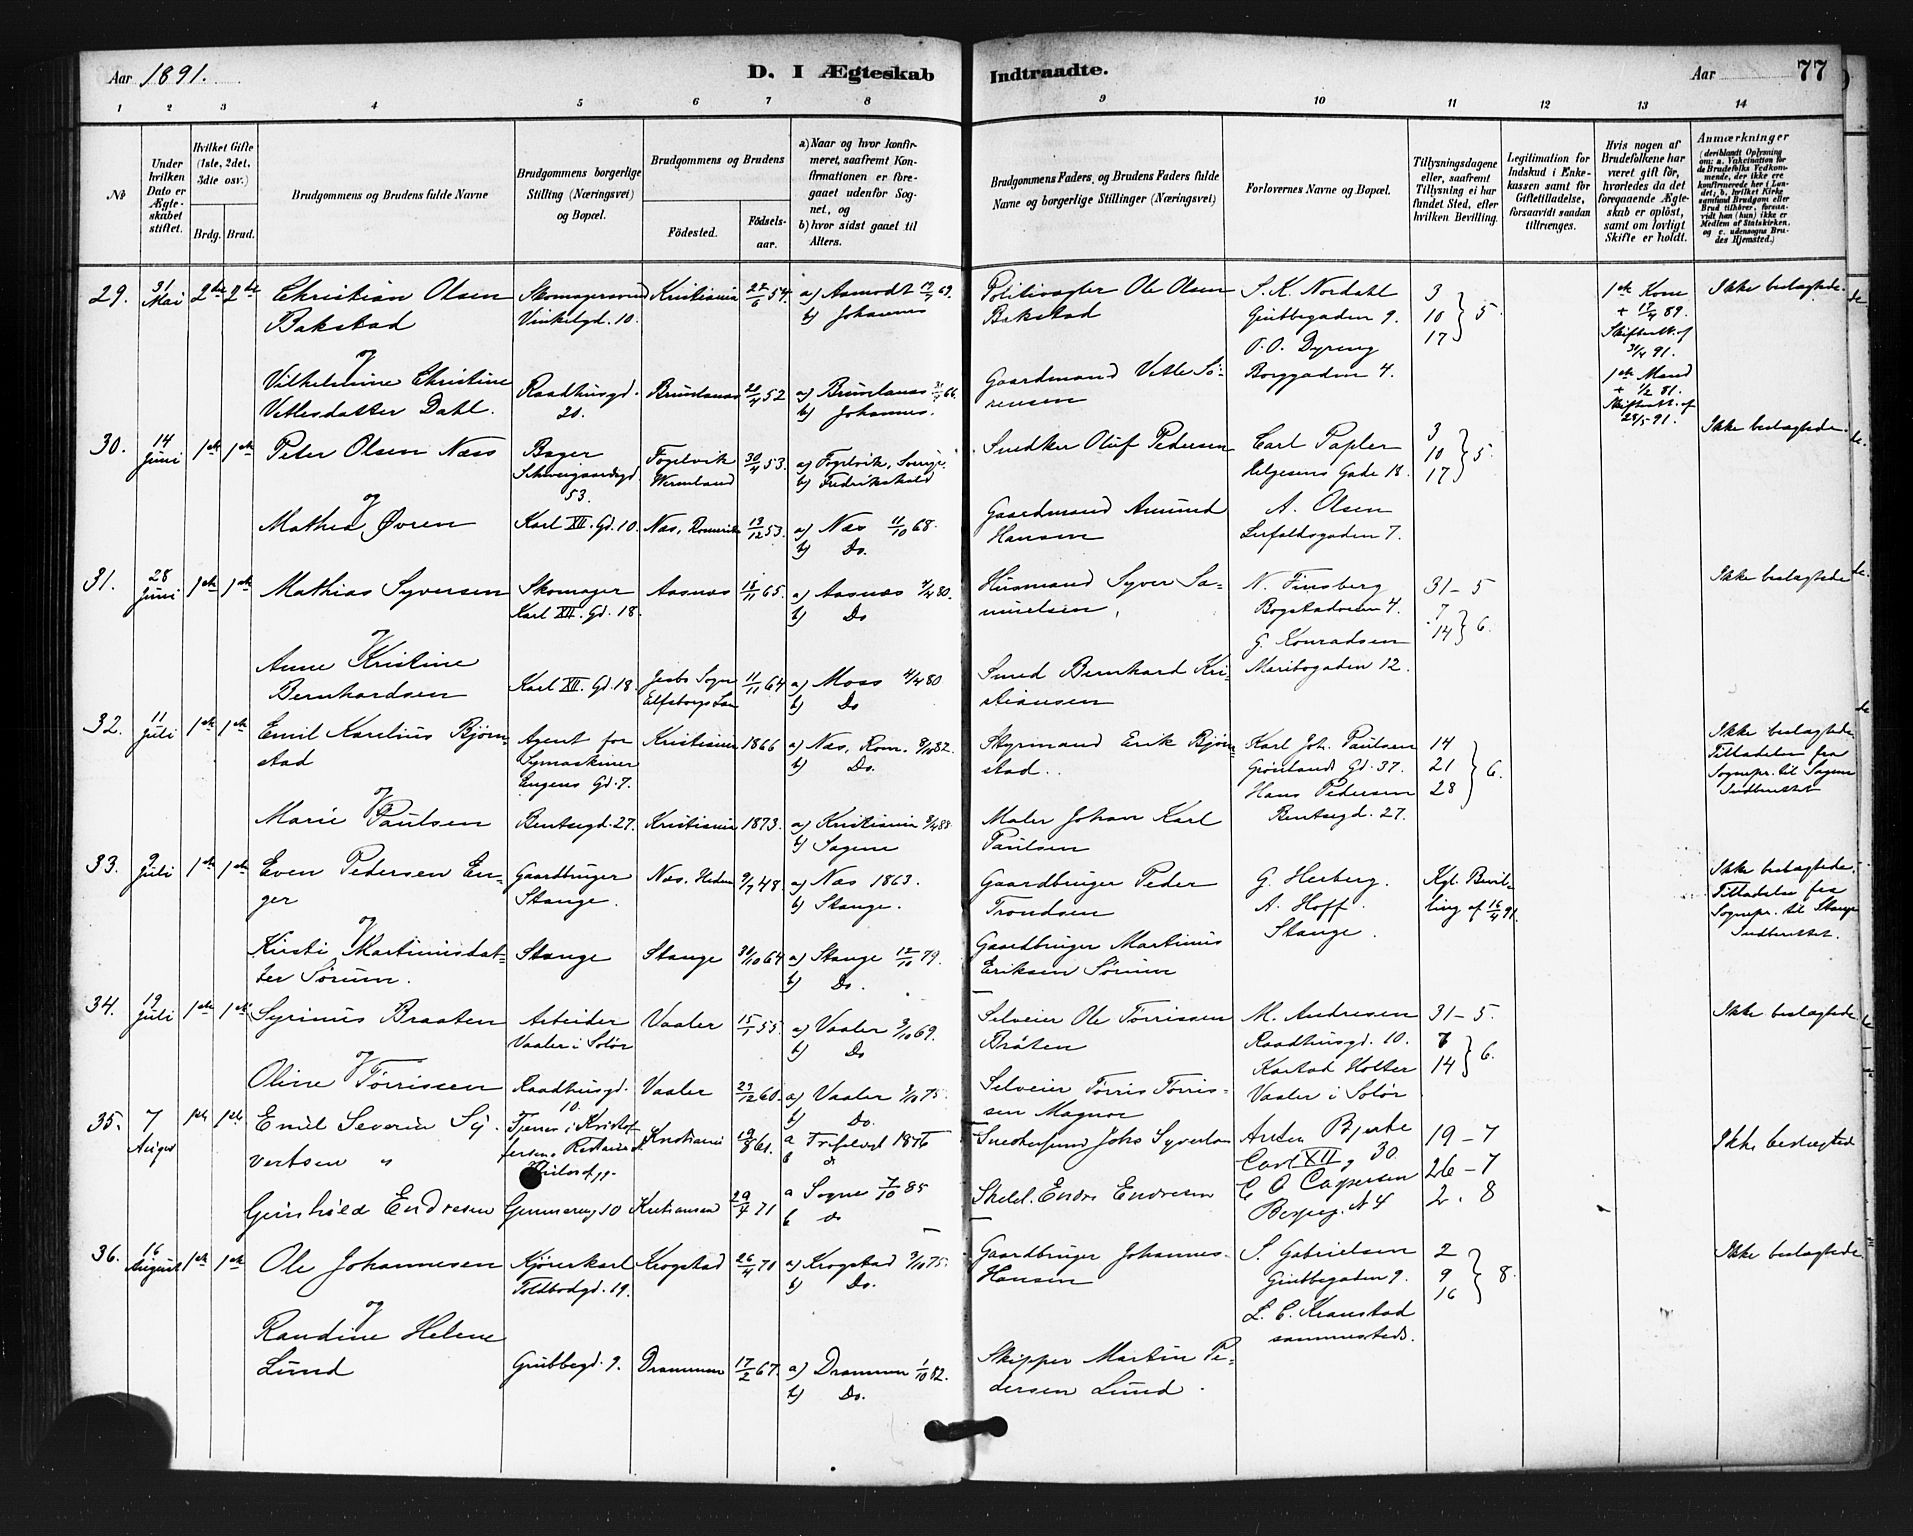 Aar 1891.
D. I Ægteskab Indtraadte.
Aar 77
1 2 3 4 5 6 7 8 9 10 11 12 13 14
№
Under hvilken Dato er Ægteskabet stiftet.
Hvilket Gifte (1ste, 2det, 3die osv.)
Brdg. Brud.
Brudgommens og Brudens fulde Navne
Brudgommens borgerlige Stilling (Næringsvei) og Bopæl.
Brudgommens og Brudens
Födested.
Födselsaar.
a) Naar og hvor konfirmeret, saafremt Konfirmationen er foregaaet udenfor Sognet, og
b) hvor sidst gaaet til Alters.
Brudgommens Faders, og Brudens Faders fulde Navne og borgerlige Stillinger (Næringsvei)
Forlovernes Navne og Bopæl.
Tillysningsdagene eller, saafremt Tillysning ei har fundet Sted, efter hvilken Bevilling.
Legitimation for Indskud i Enkekassen samt for Giftetilladelse, forsaavidt saadan tiltrænges.
Hvis nogen af Brudefolkene har været gift før, hvorledes da det foregaaende Ægteskab er oplöst, samt om lovligt Skifte er holdt.
Anmærkninger (deriblandt Oplysning om: a. Vakcination for de Brudefolks Vedkommende, der ikke ere konfirmerede her i Landet; b. hvilket Kirkesamfund Brudgom eller Brud tilhører, forsaavidt han (hun) ikke er Medlem af Statskirken, og c. udensogns Brudes Hjemsted.)
29. 31 Mai 2de 2de Christian Olsen Bakstad Skomagersvend Vinkelgd. 10. Kristiania 22/6 54. a) Asmodt 69. b) Johannes Politivagter Ole Olsen Bakstad S. K. Nordahl Grubbegaden 9. 3 10 17 } 5. 1ste Kone + 17/4 89. Skifteatt. af 31/4 91. Ikke beslægtede.
og
Vilhelmine Christine Vetlesdatter Dahl. Raadhusgd. 20. Brunlanæs 20/4 52 a) Brunlanæs 66. b) Johannes. Gaardmand Vetle Sörensen O. O. Dyreng Borggaden 4. 1ste Mand + 1/2 81. Skifteatt. af 28/5 91.
30. 14 Juni 1ste 1ste Peter Olsen Næss Bager Schweigaardsgd. 53. Fogelvik Wermland 30/4 53. a) Fogelvik, Sverige. b) Fredrikshald Snedker Oluf Pedersen Carl Papler Helgesens Gade 18. 3 10 17 } 5. Ikke beslægtede.
og
Mathea Øvren Karl XII. Gd. 10. Næs, Romerike 19/12 53. a) Næs 11/10 68. b) Do. Gaardmand Amund Hansen A. Olsen Lerfaldsgaden 7.
31. 28 Juni 1ste 1ste Mathias Syversen Skomager Karl XII. Gd. 18. Aasnæs 18/11 65. a) Aasnæs 4/4 80. b) Do Husmand Syver Samuelsen N. Finsberg Bogstadveien 4. 31-5 7 14 } 6. Ikke beslægtede
og
Anne Kristine Bernhardsen Karl XII. Gd. 18. Sogn Elfsborgs Län 11/11 64 a) Moss 4/4 80 b) Do Smed Bernhard Kristiansen G. Konradsen Maribogaden 12.
32. 11 Juli 1ste 1ste Emil Karelius Bjørnstad Agent for Symaskiner Eugens Gd. 7. Kristiania 1866 a) Næs, Rom. 8/10 82. b) Do. Styrmand Erik Bjørnstad. Karl Joh. Paulsen Grønlands Gd. 37. Hans Pedersen Bentsegd. 27. 14 21 28 } 6. Ikke beslægtede Tilladelse fra Sognepr. til Sagene Indberettet
og
Marie Paulsen Bentsegd. 27. Kristiania 1873. a) Kristiania 8/4 88 b) Sagene Maler Johan Karl Paulsen
33. 9 Juli 1ste 1ste Even Pedersen Enger Gaardbruger Stange. Næs. Hedm 9/7 48 a) Næs 1863. b) Stange. Gaardbruger Peder Trondsen G. Herberg. A. Hoff. Stange. Kgl. Bevilling af 16/4 91. Ikke beslægtede. Tilladelse fra Sognepr. til Stange Indberettet.
og
Kirsti Martinusdatter Sørum. Stange Stange 30/10 64 a) Stange 12/10 79. b) Do. Gaardbruger Martinus Eriksen Sörum
34. 19 Juli 1ste 1ste Syrinus Braaten Arbeider Vaaler i Solör Vaaler 15/1 55 a) Vaaler 3/10 69. b) Do Selveier Ole Torrissen Bråten M. Andresen Raadhusgd. 10. Karstad Holter Vaaler i Solör 31-5. 7 14 } 6. Ikke beslægtede
og
Oline Törrissen Raadhusgd. 10. Vaaler 23/12 60. a) Vaaler 3/10 75. b) Do. Selveier Torris Torrissen Magnor
35. 7 August 1ste 1ste Emil Severin Syvertsen Tjener i Kristoffersens Restaurat. Kristiania 19/8 61. a Trefoldigh 1876 b do Johs Syvertsen Anton Bjerke Carl XII g 30 19-7 26-7 2. 8 Ikke beslægtede
Gunhild Endresen 10 Kristiansand 29/4 71 a Sogne 7/10 85 b do Skild. Endre Endresen C O Caspersen Bergsg. N 4
36. 16 August 1ste 1ste Ole Johannesen Kjørerkarl Toldbodgd. 19. Krogstad 26/4 71 a) Krogstad 3/10 75. b) Do. Gaardbruger Johannes Hansen S. Gabrielsen Grubbegaden 9. L. C. Kranstad sammesteds. 2 9 16 } 8. Ikke beslægtede
og
Randine Helene Lund Grubbegd. 9. Drammen 17/2 67. a) Drammen 1/10 82. b) Do. Skipper Martin Pedersen Lund.